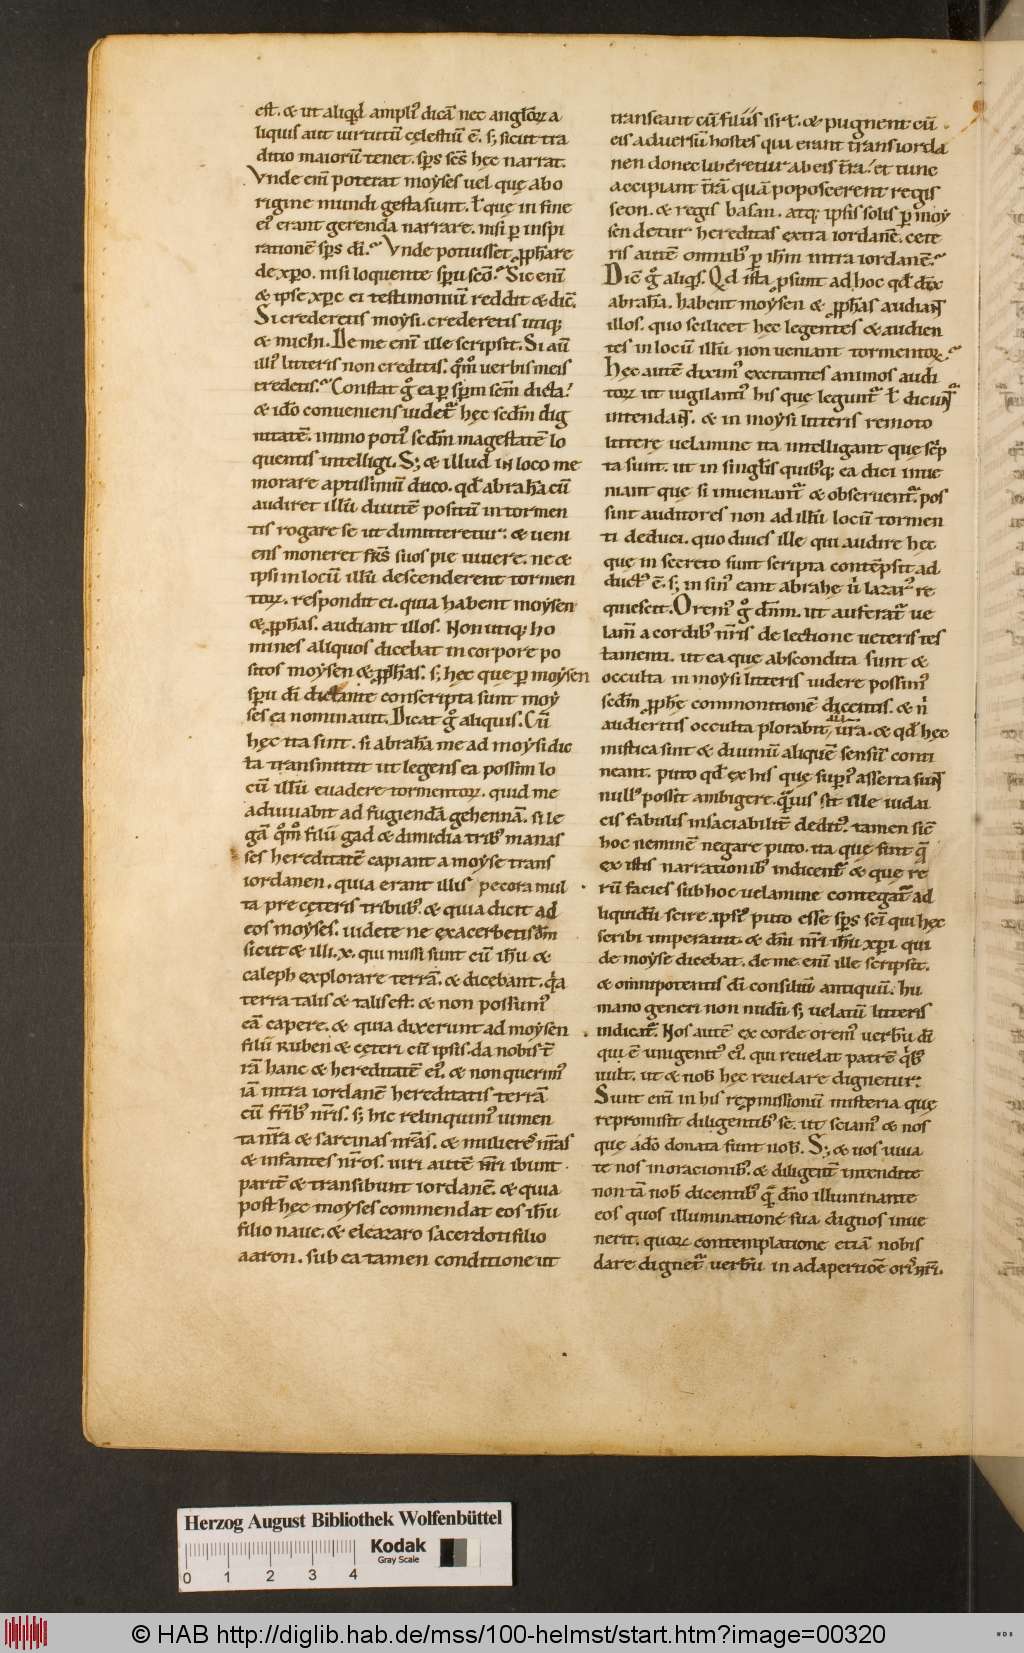 est. & ut aliqd̄ ampli᾽ dicā nec anglōꝝ a
liquis aut uirtutū cęlestiū ē. s; sicut tra
ditio maiorū tenet. sp̄s sc̄s hęc narrat.
Vnde enī poterat moẏses uel quę ab o
rigine mundi gesta sunt. ł quę in fine
ei᾽ erant gerenda narrare. nisi ꝑ inspi
rationē sp̄s dī. Vnde potuisset ꝓphare
de xp̄o. nisi loquente sp̄u scō. Sic enī
& ipse xp̄c ei testimoniū reddit & dic̄.
Si crederetis moẏsi. crederetis utiq;
& michi. De me enī ille scripsit. Si aū
illi᾽ litteris non creditis. qm̊o uerbis meis
credetis. Constat g̊ ea ꝑ sp̄m sc̄m dicta.
& idō conueniens uidet᷑ hęc scdm̄ dig
nitatē. immo poti᾽ scdm̄ magestatē lo
quentis intelligi. S; & illud in loco me
morare aptissimū duco. qd̄ abrahā cū
audiret illū diuitē positū in tormen
tis rogare se ut dimitteretur. & ueni
ens moneret fr̄s suos pie uiuere. ne &
ipsi in locū illū descenderent tormen
toꝝ. respondit ei. quia habent moẏsen
& ꝓphas. audiant illos. Non utiq; ho
mines aliquos dicebat in corpore po
sitos moẏsen & ꝓphas. s; hęc que ꝑ moẏsen
sp̄u dī dictante conscripta sunt moẏ
ses ea nominauit. Dicat g̊ aliquis. Cū
hęc ita sint. si abrahā me ad moẏsi dic
ta transmittit ut legens ea possim lo
cū illū euadere tormentoꝝ. quid me
adiuuabit ad fugiendā gehennā. si le
gā qm̊o filii gad & dimidia trib᾽ manas
ses hereditatē capiant a moẏse trans
iordanen. quia erant illis pecora mul
ta pre cęteris tribub᾽. & quia dicit ad
eos moẏses. uidete ne exacerbetis dm̄
sicut & illi .x. qui missi sunt cū ihū &
caleph explorare terrā. & dicebant. qa
terra talis & talis est. & non possum᾽
eā capere. & quia dixerunt ad moẏsen
filii Ruben & cęteri cū ipsis. da nobis t̄
rā hanc & hereditatē ei᾽. & non querim᾽
iā intra iordanē hereditatis terrā
cū frīb᾽ nr̄is. s; hic relinquim᾽ iumen
ta nr̄a & sarcinas nr̄as. & mulieres nr̄as
& infantes nr̄os. uiri autē nr̄i ibunt
paritē & transibunt iordanē. & quia
post hęc moẏses commendat eos ihū
filio naue. & eleazaro sacerdoti filio
aaron. sub ea tamen conditione ut
transeant cū filiis isrł. & pugnent cū
eis aduersū hostes qui erant trans iorda
nen donec liberetur ab eis t̄ra. et tunc
accipiant t̄rā quā poposcerent regis
seon. & regis basan. atq; ipsis solis ꝑ moẏ
sen detur hereditas extra iordanē. cete
ris autē omnib᾽ ꝑ ihm̄ intra iordanē.
Dic̄ g̊ aliqs. Qd ista ꝓsunt ad hoc qd̄ dix̄
abrahā. habent moẏsen & ꝓphas audiant
illos. quo scilicet hęc legentes & audien
tes in locū illū non ueniant tormentoꝝ.
Hęc autē dixim᾽ excitantes animos audi
toꝝ ut uigilanti᾽ his quę legunt᷑ ł dicunt᷑
intendant. & in moẏsi litteris remoto
littere uelamine ita intelligant que scp̄
ta sunt. ut in singlis quibq; ea dici inue
niant quę si inueniant᷑ & obseruent᷑. pos
sint auditores non ad illū locū tormen
ti deduci. quo diues ille qui audire hęc
quę in secreto sunt scripta contēpsit ad
duct᾽ ē. s; in sin᾽ eant abrahę u̇ lazar᾽ re
quiescit. Orem᾽ g̊ dn̄m. ut auferat᷑ ue
lam̄ a cordib᾽ nr̄is de lectione ueteris tes
tamenti. ut ea quę abscondita sunt &
occulta in moẏsi litteris uidere possim᾽
scdm̄ ꝓphę commonitionē dicentis. & ni
audieritis occulta plorabit aīa ur̄a. & qd̄ hęc
mistica sint & diuinū aliquē sensū conti
neant. puto qd̄ ex his quę superi᾽ asserta sunt
null᾽ possit ambigere. quis sit ille iudai
cis fabulis insaciabilit̄ dedit᾽. tamen sic̄
hoc neminē negare puto. ita que sint q̄
ex istis narrationib᾽ indicent᷑ & que re
rū facies sub hoc uelamine contegat᷑ ad
liquidū scire ipsi᾽ puto esse sp̄s scī qui hęc
scribi imperauit. & dn̄i nr̄i ihū xp̄i qui
de moẏse dicebat. de me enī ille scripsit.
& omnipotentis dī consiliū antiquū. hu
mano generi non nudū s; uelatū litteris
indicat᷑. Nos autē ex corde orem᾽ uerbū dī
qui ē unigenit᾽ ei᾽. qui reuelat patrē qb᾽
uult. ut & nob̄ hęc reuelare dignetur.
Sunt enī in his repmissionū misteria quę
repromisit diligentib᾽ se. ut sciam᾽ & nos
que a dō donata sunt nob̄. S; & uos iuua
te nos in oracionib᾽. & diligent̄ intendite
non tā nob̄ dicentib᾽ q̄ dn̄o illuminante
eos quos illuminatione sua dignos inue
nerit. quoꝝ contemplatione etiā nobis
dare dignet᷑ uerbū in adapertiōe oris nr̄i.
Herzog August Bibliothek Wolfenbüttel
Kodak
Gray Scale
0 1 2 3 4
© HAB http://diglib.hab.de/mss/100-helmst/start.htm?image=00320